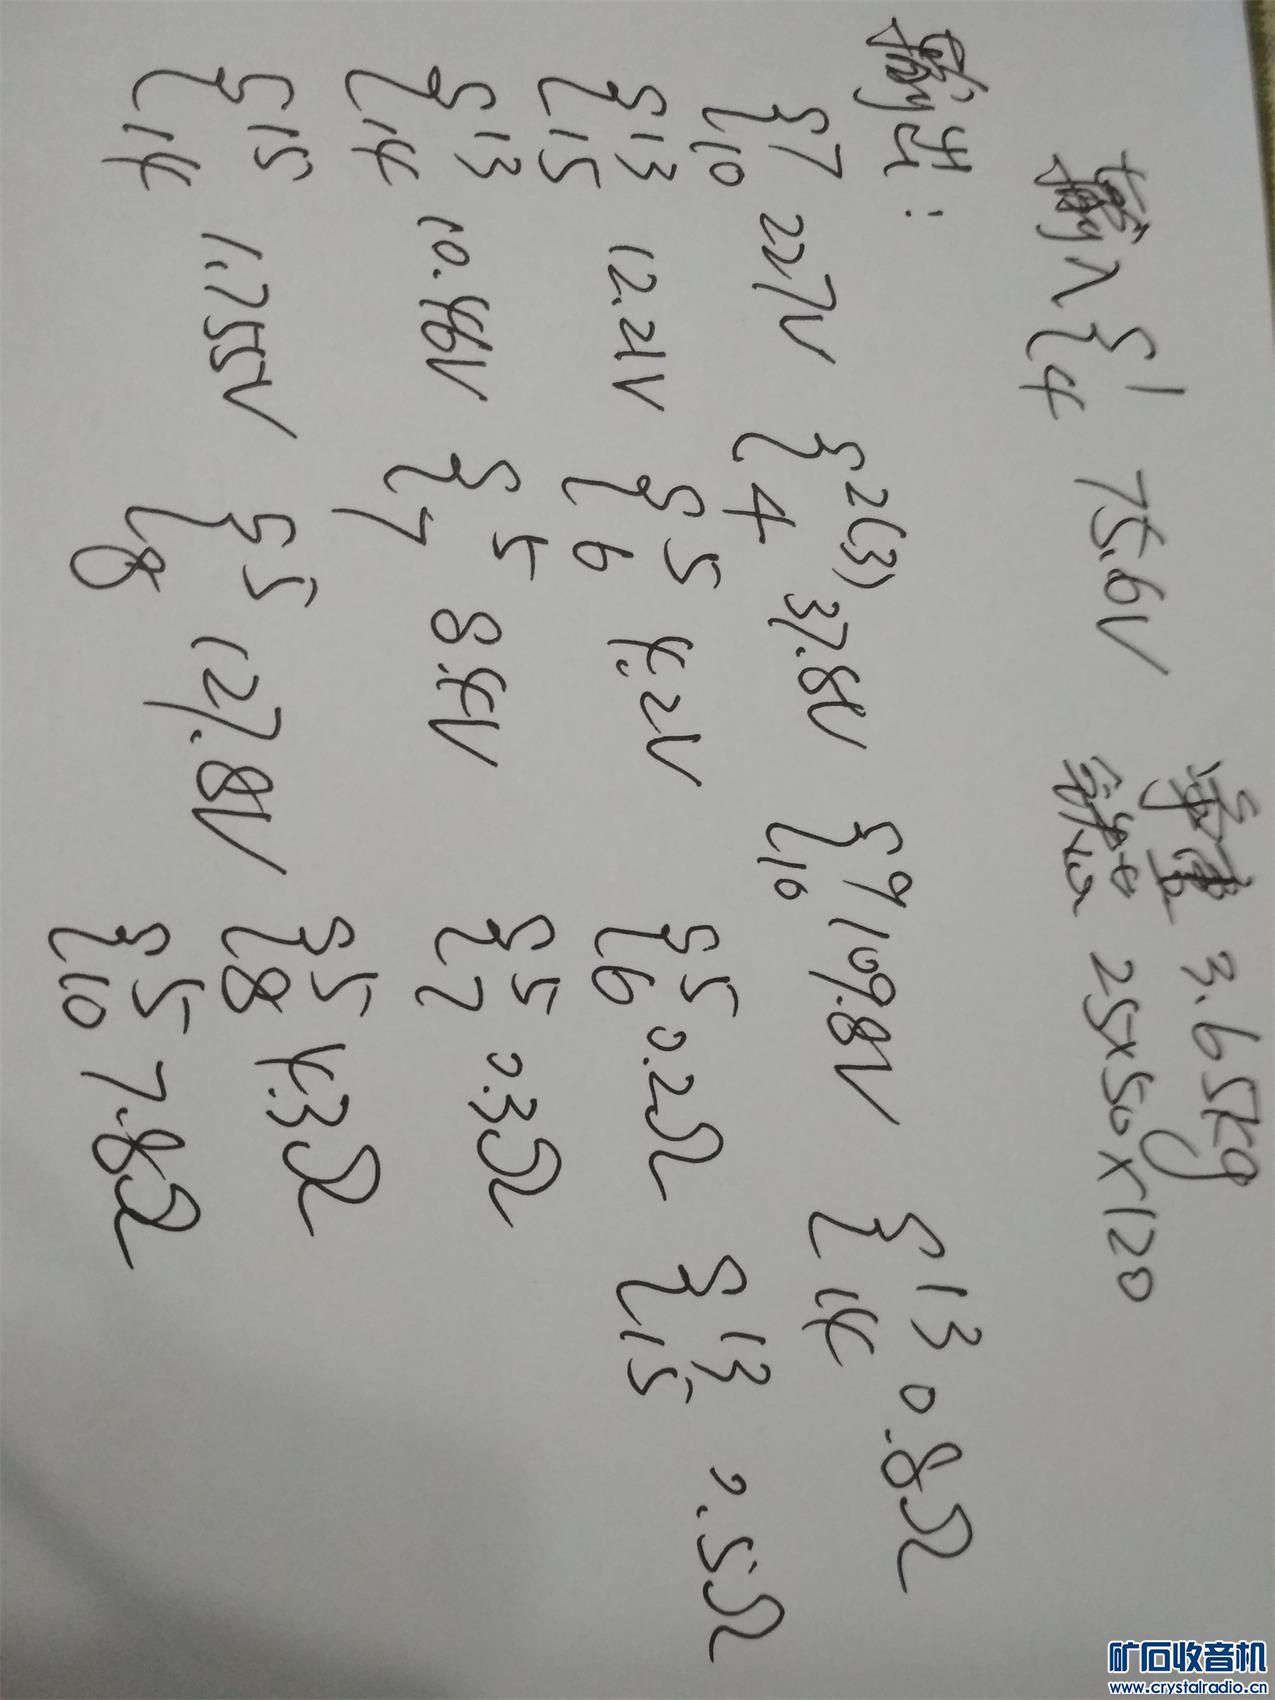 净重 3.65kg
输入 { 1 4 75.6V 铁芯 25×50×120
输出:
{ 7 10 227V { 2(3) 4 37.8V { 9 10 109.8V { 13 14 0.8Ω
{ 13 15 12.21V { 5 6 4.2V { 5 6 0.2Ω { 13 15 0.5Ω
{ 13 14 10.46V { 5 7 8.4V { 5 7 0.3Ω
{ 15 14 1.755V { 5 8 127.8V { 5 8 4.3Ω
{ 5 10 7.8Ω
矿石收音机
www.crystalradio.cn